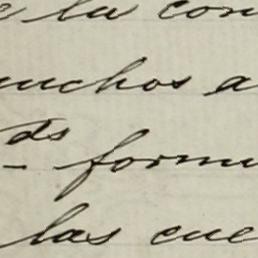 e la con
muchos a
ds
- formu
las cue